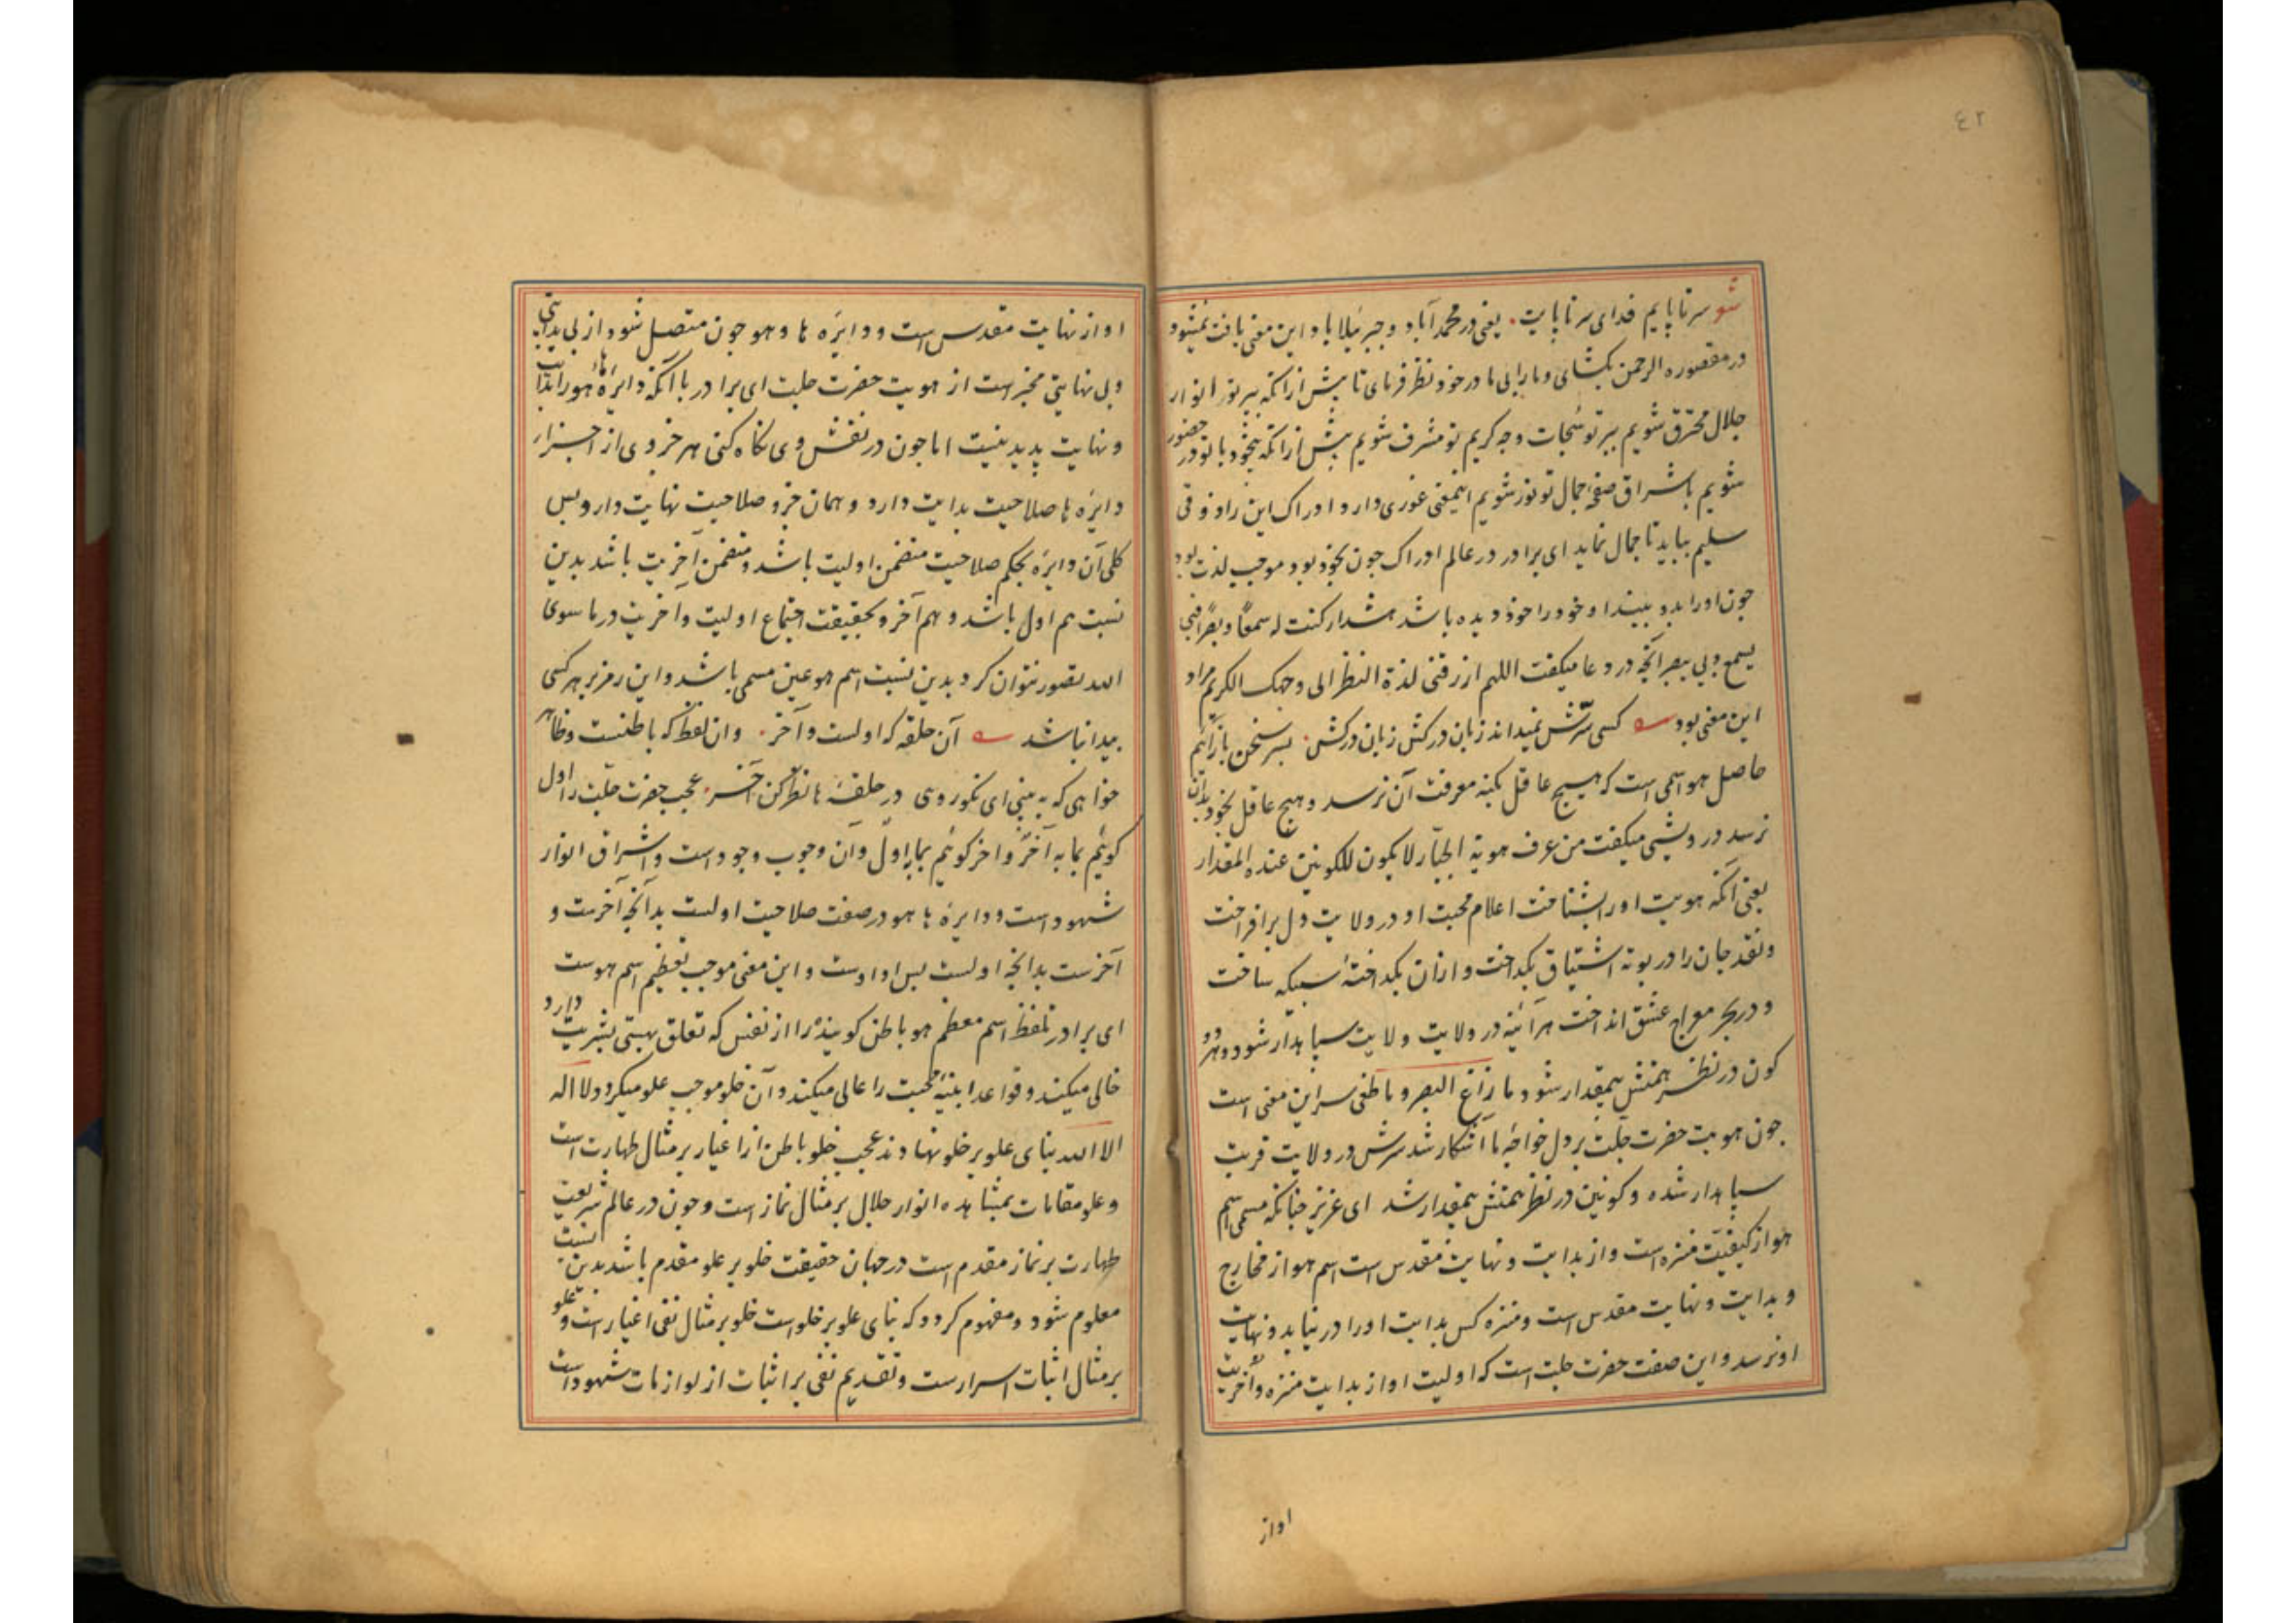 ٤٢
شو سرتاپایم فدای سر تا پایت یعنی در محمد آباد و جبرئیلا باد این معنی یافت نمیشود
در مقصوره الرحمن بکشای و مارا بی ما در خود نظر فرمای تا پیش ازانکه بپرتو انوار
جلال محترق شویم بپرتو سُبحات وجه کریم تو مشرف شویم پیش ازانکه بیخود با تو در حضور
شویم باشراق صفحهٔ جمال تو نور شویم اینمعنی غوری دارد ادراک این را ذوقی
سلیم بباید تا جمال نماید ای برادر در عالم ادراک جون بخود بود موجب لذت بود
جون اورا بدو بیند او خود را خود دیده باشد هشدار کنت له سمعًا و بصرًا فبی
یسمع وبی یبصر انچه در دعا میکفت اللهم ارزقنی لذة النظر الی وجهک الکریم مراد
این معنی بود کسی سرّش نمیداند زبان درکش زبان درکش بسر سخن باز آئیم
حاصل هو اسمی است که هیچ عاقل بکنه معرفت آن نرسد و هیچ عاقل بخود بدان
نرسد درویشی میکفت من عرف هویة الجبّار لا یکون للکونین عنده المقدار
یعنی آنکه هویت اورا بشناخت اعلام محبت او در ولایت دل برافراخت
ونقد جان را در بوتهٔ اشتیاق بکداخت وازان بکداختهٔ سبیکه ساخت
و در بحر معراج عشق انداخت هرآئینه در ولایت ولایت سپاهدار شود و هر دو
کون در نظر همتش بیمقدار شود ما زاغ البصر و ما طغی سر این معنی است
جون هویت حضرت جلّت بر دل خواجهٔ ما آشکار شد سرش در ولایت قربت
سپاهدار شده و کونین در نظر همتش بیمقدار شد ای عزیز جنانکه مسمی اسم
هو از کیفیّت منزه است و از بدایت و نهایت مقدس است اسم هو از مخارج
و بدایت و نهایت مقدس است و منزه کس بدایت اورا در نیابد و نهایت
او نرسد و این صفت حضرت جلت است که اولیت او از بدایت منزه و آخریت
اواز
او از نهایت مقدس است و دایرهٔ ها و هو جون متصل شود از بی بدایتی
وبی نهایتی مخبر است از هویت حضرت جلت ای برادر با آنکه دایرهٔ هاء هو را بدایت
و نهایت پدید نیست اما جون در نقش وی نکاه کنی هر جزوی از اجزاء
دایرهٔ ها صلاحیت بدایت دارد و همان جزو صلاحیت نهایت دارد پس
کلی آن دایره بحکم صلاحیت متضمن اولیت باشد و متضمن آخریت باشد بدین
نسبت هم اول باشد و هم آخر و بحقیقت اجتماع اولیت و آخریت در ما سوی
الله تصور نتوان کرد بدین نسبت اسم هو عین مسمی باشد و این رمز بر هرکسی
پیدا نباشد آن حلقه که اولست و آخر وان لفظ که باطنست و ظاهر
خواهی که ببینی ای نکوروی در حلقهٔ ها نظر کن آخر عجب حضرت جلّت را اول
کوئیم بما به آخرٌ و اخر کوئیم بما به اولٌ وآن وجوب وجود است و اشراق انوار
شهود است و دایرهٔ ها هو در صفت صلاحیت اولست بدانچه آخرست و
آخرست بدانچه اولست پس او اوست و این معنی موجب تعظیم اسم هوست
ای برادر تلفظ اسم معظم هو باطن کوینده را از نفس که تعلق بهستی بشریت دارد
خالی میکند و قواعد ابنیهٔ محبت را عالی میکند و آن خلو موجب علو میکردد لا اله
الا الله بنای علو بر خلو نهادند عجب خلو باطن از اغیار بر مثال طهارت است
و علو مقامات بمشاهده انوار جلال بر مثال نماز است و جون در عالم شریعت
طهارت بر نماز مقدم است در جهان حقیقت خلو بر علو مقدم باشد بدین نسبت
معلوم شود و مفهوم کردد که بنای علو بر خلو است خلو بر مثال نفی اغیار است و علو
بر مثال اثبات اسرارست و تقدیم نفی بر اثبات از لوازمات شهود است